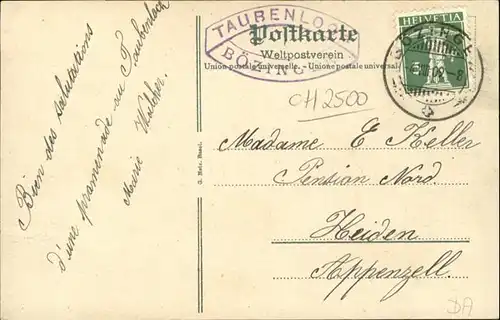 TAUBENLOCH
BÖZINGEN
Postkarte
Weltpostverein
Union postale universelle. - Unione postale universale
HELVETIA
BÖZINGEN
CH2500
Bien des salutations
d'une promenade au Taubenloch
Marie
Madame E Keller
Pension Nord.
Heiden
Appenzell.
G. Metz, Basel.
DA